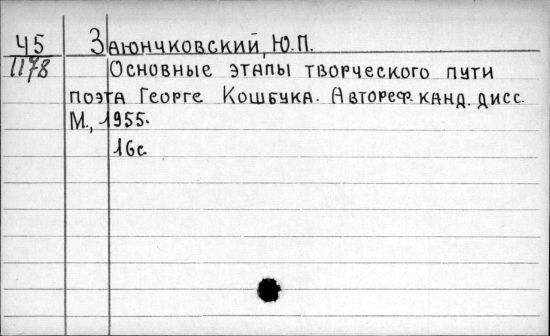 Ч5 Заюнчковский, Ю.П.
1178 Основные этапы творческого пути
поэта Георге Кошбука. Автореф. канд. дисс.
М., 1955.
16с.